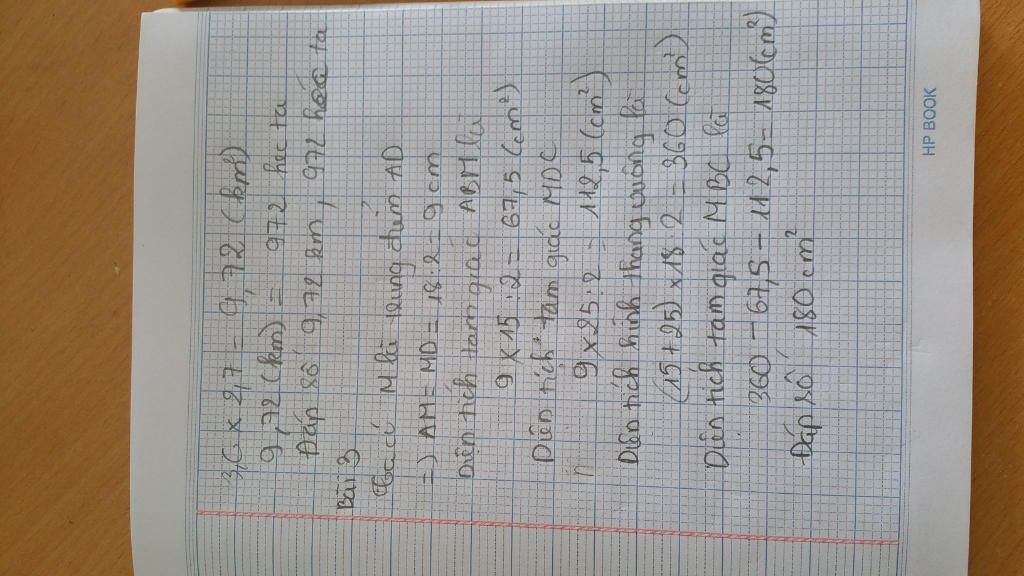 3,6 x 2,7 = 9,72 (km²)
9,72 (km) = 972 hec ta
Đáp số 9,72 km, 972 ta
Bài 3
Ta có M là trung điểm AD
=) AM = MD = 18:2 = 9 cm
Diện tích tam giác ABM là
9 x 15 : 2 = 67,5 (cm²)
Diện tích tam giác MDC
9 x 25 : 2 = 112,5 (cm²)
Diện tích hình thang vuông là
(15 + 25) x 18 : 2 = 360 (cm²)
Diện tích tam giác MBC là
360 - 67,5 - 112,5 = 180 (cm²)
Đáp số 180 cm²
HP BOOK